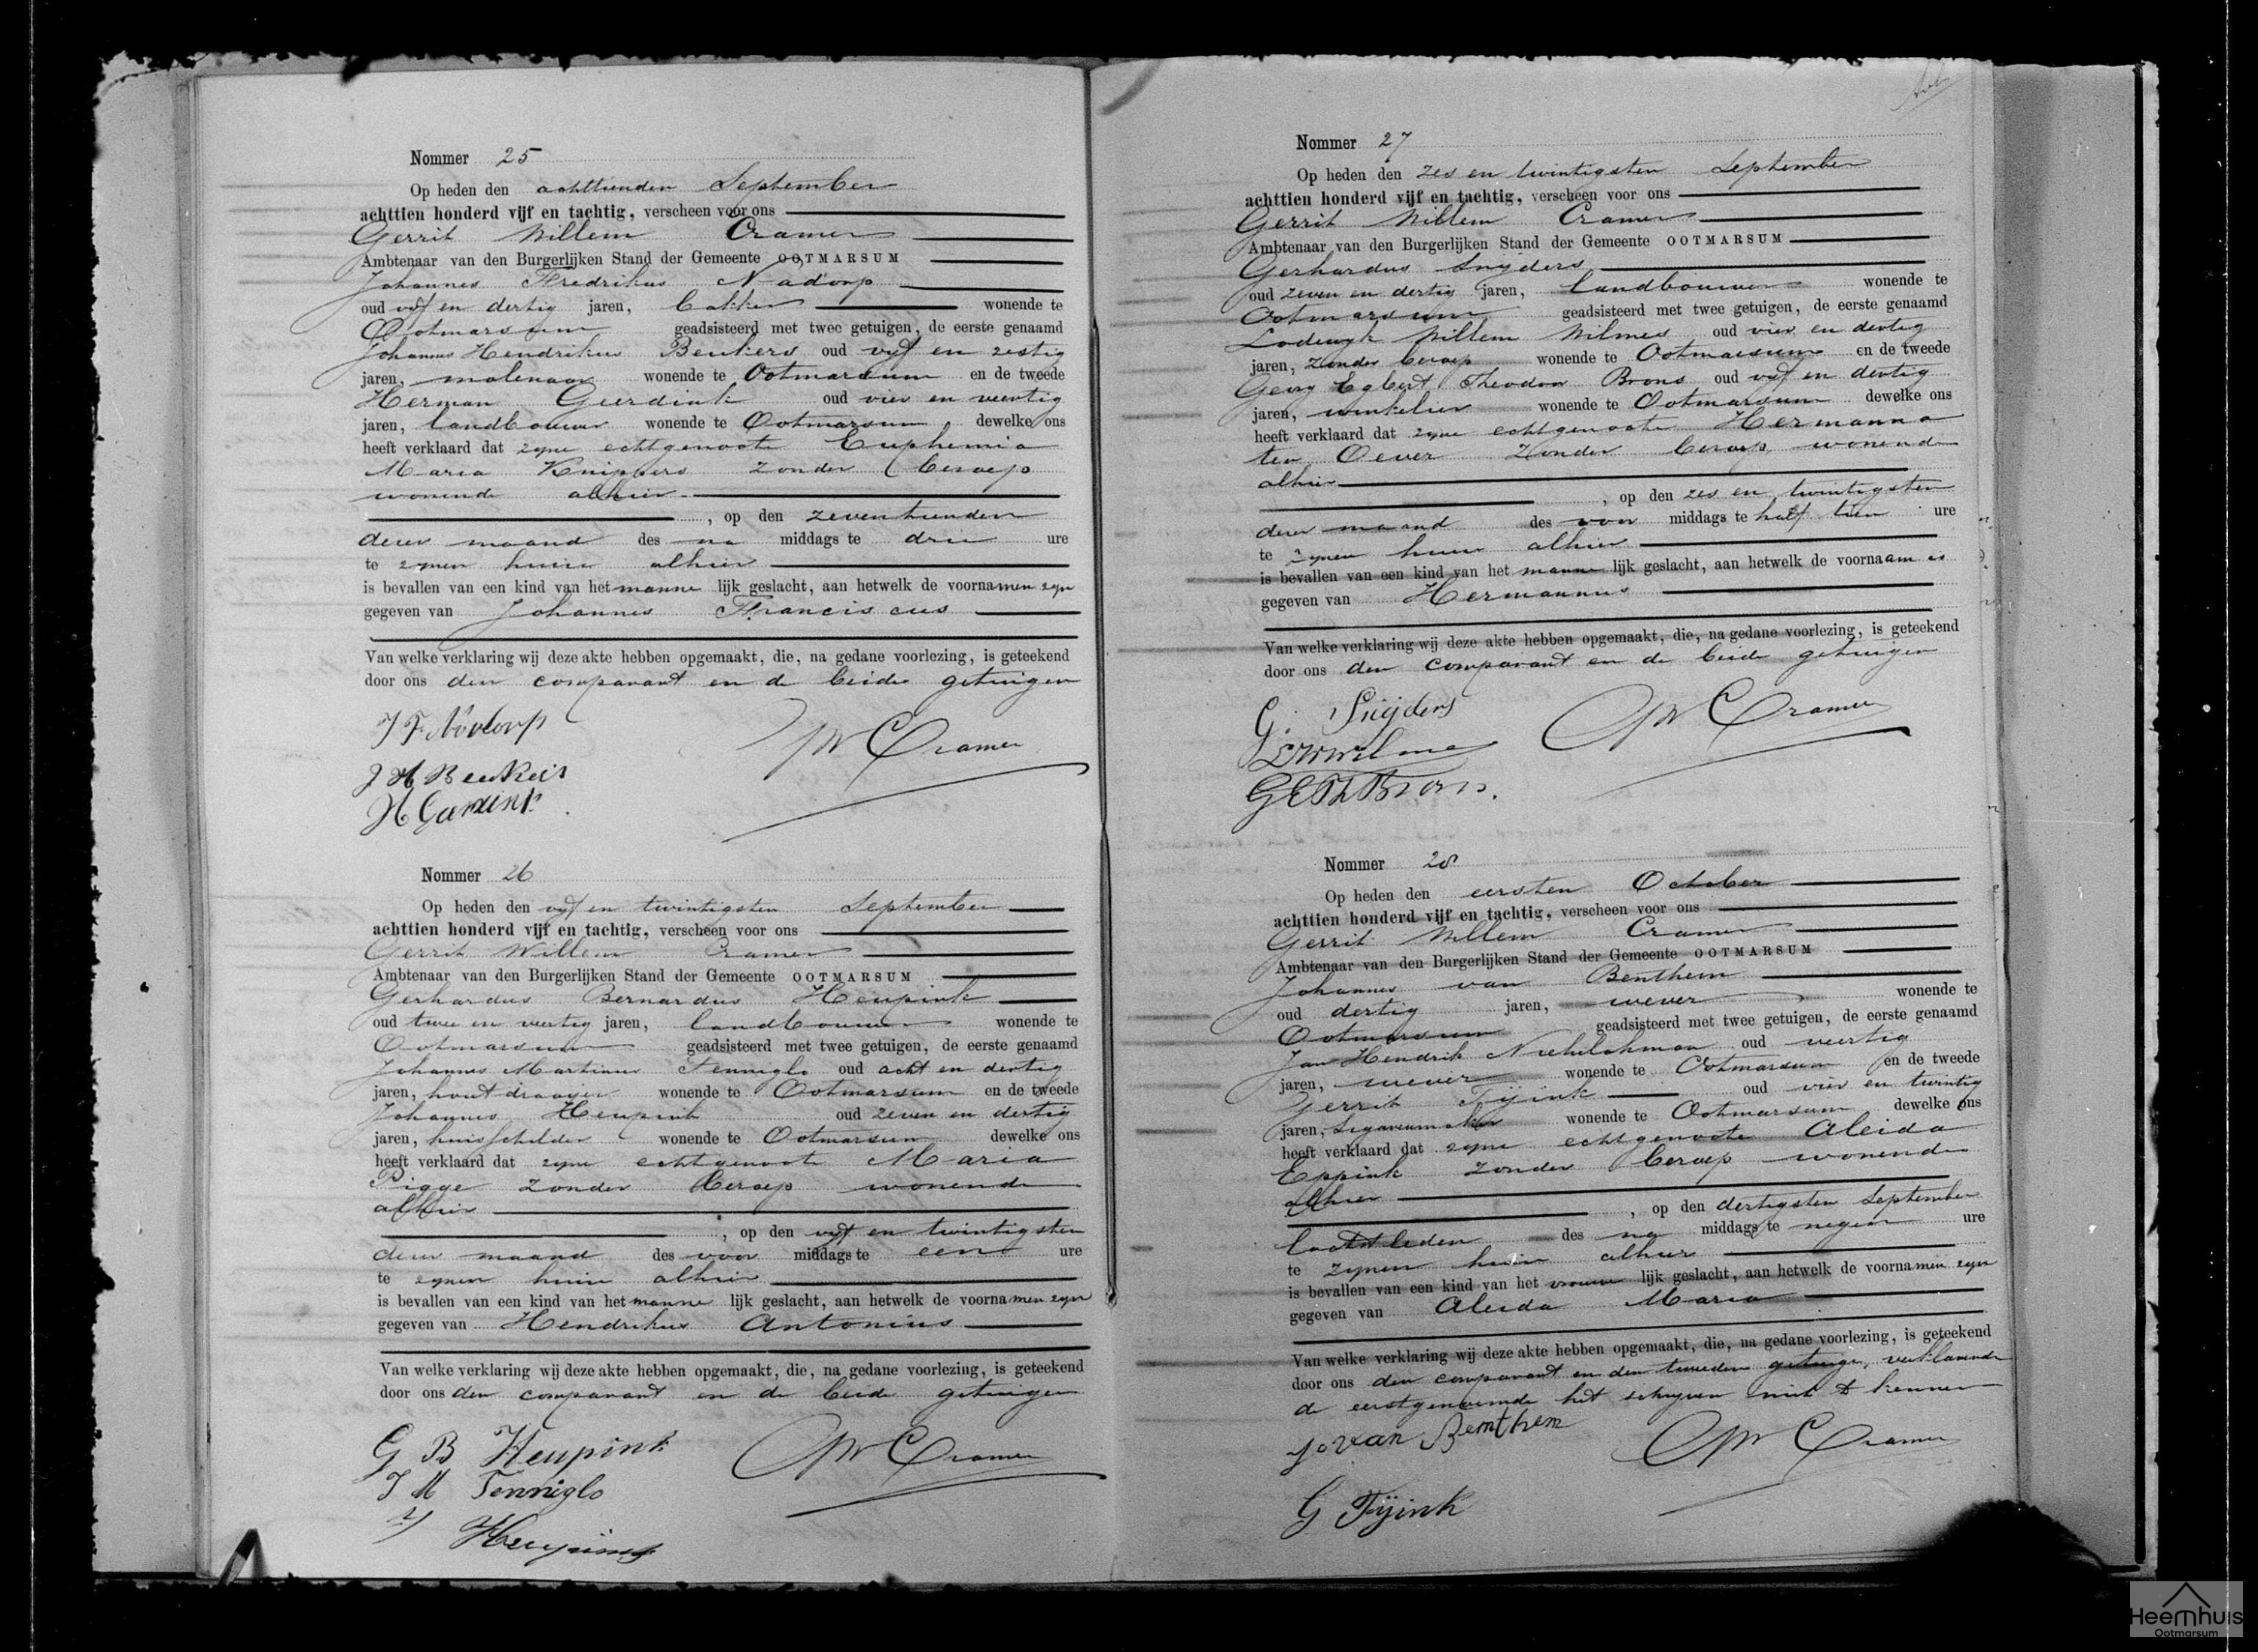 Nommer 25
Op heden den achttienden September
achttien honderd vijf en tachtig, verscheen voor ons
Gerrit Willem Cramer
Ambtenaar van den Burgerlijken Stand der Gemeente OOTMARSUM
Johannes Fredrikus Nadorp
oud vijf en dertig jaren, bakker wonende te
Ootmarsum geadsisteerd met twee getuigen, de eerste genaamd
Johannes Hendrikus Beukers oud vijf en zestig
jaren, molenaar wonende te Ootmarsum en de tweede
Herman Geerdink oud vier en veertig
jaren, landbouwer wonende te Ootmarsum dewelke ons
heeft verklaard dat zijne echtgenoote Euphemia
Maria Knippers zonder beroep
wonende alhier
, op den zeventienden
dezer maand des na middags te drie ure
te zynen huize alhier
is bevallen van een kind van het manne lijk geslacht, aan hetwelk de voornamen zyn
gegeven van Johannes Franciscus
Van welke verklaring wij deze akte hebben opgemaakt, die, na gedane voorlezing, is geteekend
door ons den comparant en de beide getuigen
J F Nadorp
GW Cramer
J H Beukers
H Geerdink
Nommer 26
Op heden den vijf en twintigsten September
achttien honderd vijf en tachtig, verscheen voor ons
Gerrit Willem Cramer
Ambtenaar van den Burgerlijken Stand der Gemeente OOTMARSUM
Gerhardus Bernardus Heupink
oud twee en veertig jaren, landbouwer wonende te
Ootmarsum geadsisteerd met twee getuigen, de eerste genaamd
Johannes Martinus Tenniglo oud acht en dertig
jaren, houtdraaijer wonende te Ootmarsum en de tweede
Johannes Heupink oud zeven en dertig
jaren, huisschilder wonende te Ootmarsum dewelke ons
heeft verklaard dat zyne echtgenoote Maria
Pigge zonder beroep wonende
alhier
, op den vijf en twintigsten
dezer maand des voor middags te een ure
te zynen huize alhier
is bevallen van een kind van het manne lijk geslacht, aan hetwelk de voornamen zyn
gegeven van Hendrikus Antonius
Van welke verklaring wij deze akte hebben opgemaakt, die, na gedane voorlezing, is geteekend
door ons den comparant en de beide getuigen
G B Heupink
GW Cramer
J M Tenniglo
J Heupink
Nommer 27
Op heden den zes en twintigsten September
achttien honderd vijf en tachtig, verscheen voor ons
Gerrit Willem Cramer
Ambtenaar van den Burgerlijken Stand der Gemeente OOTMARSUM
Gerhardus Snyders
oud zeven en dertig jaren, landbouwer wonende te
Ootmarsum geadsisteerd met twee getuigen, de eerste genaamd
Lodewyk Willem Wilmes oud vier en dertig
jaren, zonder beroep wonende te Ootmarsum en de tweede
Georg Egbert Theodoor Brons oud vijf en dertig
jaren, winkelier wonende te Ootmarsum dewelke ons
heeft verklaard dat zyne echtgenoote Hermanna
ter Oever zonder beroep, wonende
alhier
, op den zes en twintigsten
dezer maand des voor middags te half tien ure
te zynen huize alhier
is bevallen van een kind van het manne lijk geslacht, aan hetwelk de voornaam is
gegeven van Hermannus
Van welke verklaring wij deze akte hebben opgemaakt, die, na gedane voorlezing, is geteekend
door ons den comparant en de beide getuigen
G. Snijders
GW Cramer
LWWilmes
GEThBrons.
Nommer 28
Op heden den eersten October
achttien honderd vijf en tachtig, verscheen voor ons
Gerrit Willem Cramer
Ambtenaar van den Burgerlijken Stand der Gemeente OOTMARSUM
Johannes van Benthem
oud dertig jaren, wever wonende te
Ootmarsum geadsisteerd met twee getuigen, de eerste genaamd
Jan Hendrik oud veertig
jaren, wever wonende te Ootmarsum en de tweede
Gerrit Tijink oud vier en twintig
jaren, Sigarenmaker wonende te Ootmarsum dewelke ons
heeft verklaard dat zyne echtgenoote Aleida
Eppink zonder beroep wonende
alhier
, op den dertigsten September
laatstleden des na middags te negen ure
te zynen huize alhier
is bevallen van een kind van het vrouwe lijk geslacht, aan hetwelk de voornamen zyn
gegeven van Aleida Maria
Van welke verklaring wij deze akte hebben opgemaakt, die, na gedane voorlezing, is geteekend
door ons den comparant en den tweeden getuige, verklarende
de eerstgenoemde het schryven niet te kennen
J van Benthem
GW Cramer
G Tijink
Heemhuis
Ootmarsum